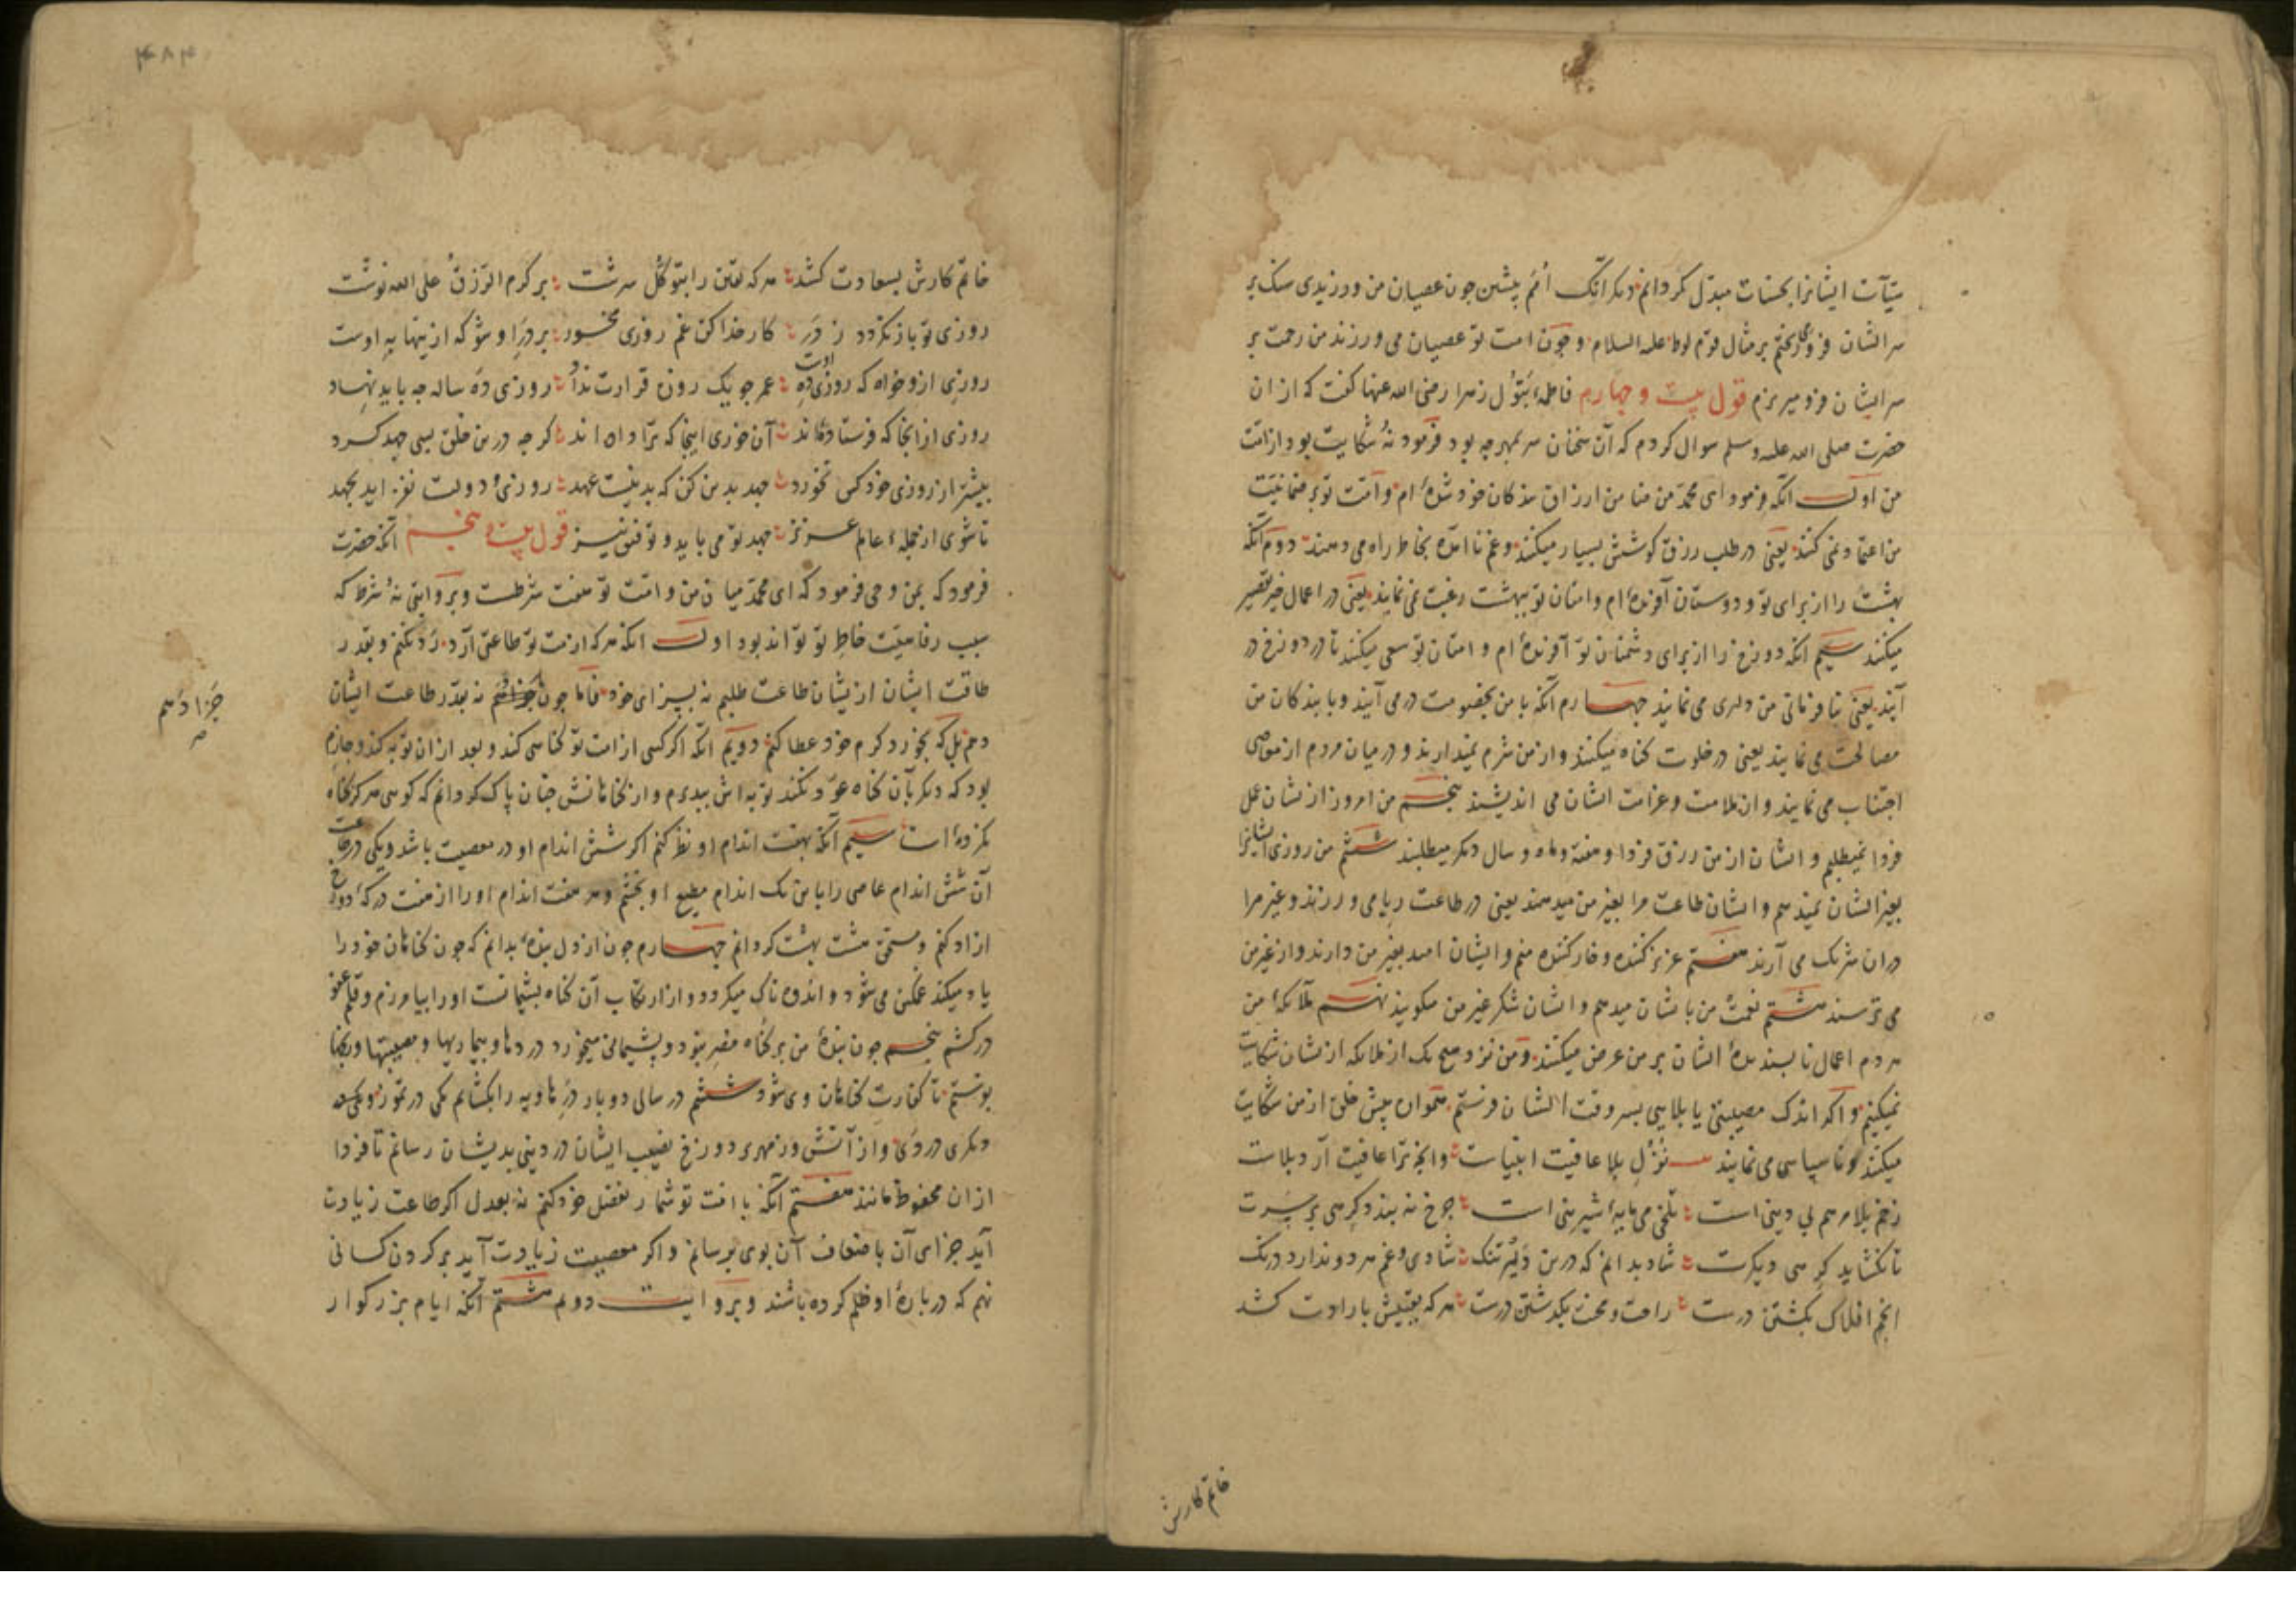 سیّآت ایشانرا بحسنات مبدّل کردانم دیکر آنک اُمَم پیشین چون عصیان من ورزیدی سنک بر
سر ایشان فرو می‌ریختم بر مثال قوم لوط علیه السلام و چون امت تو عصیان می ورزند من رحمت بر
سر ایشان فرو میریزم قول بیست و چهارم فاطمهٔ بَتول زهرا رضی الله عنها کفت که از ان
حضرت صلی الله علیه وسلم سوال کردم که آن سخنان سر بمهر چه بود فرمود نُه شکایت بود از امّت
من اول آنکه فرمود ای محمّد من ضامن ارزاق بندکان خود شدهٔ ام و امّت تو بر ضمانیّت
من اعتماد نمی کنند یعنی در طلب رزق کوشش بسیار میکنند و غم ناآمده بخاطر راه می دهند دوم آنکه
بهشت را از برای تو و دوستان آفریدهٔ ام و امتان تو ببهشت رغبت نمی نمایند یعنی در اعمال خیر تقصیر
میکنند سیم آنکه دوزخ را از برای دشمنان تو آفریدهٔ ام و امتان تو سعی میکنند تا در دوزخ در
آیند یعنی بنافرمانی من دلیری می نمایند چهارم آنکه با من بخصومت در می آیند و با بندکان من
مصالحت می نمایند یعنی در خلوت کناه میکنند و از من شرم نمیدارند و در میان مردم از معاصی
اجتناب می نمایند و از ملامت و غرامت ایشان می اندیشند پنجم من امروز از یشان عمل
فردا نمیطلبم و ایشان از من رزق فردا و هفته و ماه و سال دیکر میطلبند ششم من روزی ایشانرا
بغیر ایشان نمیدهم و ایشان طاعت مرا بغیر من میدهند یعنی در طاعت ریا می ورزند و غیر مرا
دران شریک می آرند هفتم عزیز کننده و خار کننده منم و ایشان امید بغیر من دارند و از غیر من
می ترسند هشتم نعمت من بایشان میدهم و ایشان شکر غیر من میکویند نهم ملائکهٔ من
هر دم اعمال ناپسندیدهٔ ایشان بر من عرض میکنند و من نزد هیچ یک از ملائکه از یشان شکایت
نمیکنم و اکر اندک مصیبتی یا بلایی بسر وقت ایشان فرستم پیش خلق از من شکایت
میکنند و ناسپاسی می نمایند نُزُلِ بلا عافیت انبیاست وانچه ترا عافیت آرد بلاست
زخم بلا مرهم بی دینی است تلخی می مایهٔ شیرینی است چرخ نه بندد کِرهی بر سَرت
تا نکشاید کِرهی دیکرت شاد بدانم که درین دَیْر تنک شادی و غم هر دو ندارد درنک
انجم افلاک بکشتن درست راحت و محنت بکذشتن درست هر که یقینش بارادت کشد
خاتم کارش
خاتم کارش بسعادت کشد هر که یقین را بتوکّل سرشت بر کرم الرّزقُ علی الله نوشت
روزی تو باز نکردد ز در کار خدا کن غم روزی مخور بر درِ او شو که ازینها بِهِ اوست
روزی ازو خواه که روزی دِهِ اوست عمر چو یک روزه قرارت نداد روزی دَه ساله چه باید نهاد
روزی از انجا که فرستاده‌اند آن خوری اینجا که ترا داده اند کرچه درین خلق بسی جهد کرد
بیشتر از روزی خود کس نخورد جهد بدین کن که بدینست عهد روزی و دولت نفزاید بجهد
تا شوی از جملهٔ عالم عزیز جهد تو می باید و توفیق نیز قول بیست و پنجم آنکه حضرت
فرمود که بمن وحی فرمود که ای محمّد میان من و امّت تو هفت شرطست و بروایتی نُه شرط که
سبب رفاهیّت خاطر تو تواند بود اول آنکه هر که از امت تو طاعتی آرد رَد نکنم و بقدر
طاقت ایشان از یشان طاعت طلبم نه بسزای خود فامّا چون جزا نه بقدر طاعت ایشان
دهم بل که بجود و کرم خود عطا کنم دویم آنکه اکر کسی از امت تو کناهی کند و بعد از ان توبه کند و جازم
بود که دیکر بآن کناه عَوْد نکند توبه اش بپذیرم و از کناهانش چنان پاک کردانم که کویی هرکز کناه
نکرده است سیم آنکه بهفت اندام او نظر کنم اکر شش اندام او در معصیت باشد و یکی در طاعت
آن شش اندام عاصی را باین یک اندام مطیع او بخشم و هر هفت اندام او را از هفت درکهٔ دوزخ
ازاد کنم و مستحق هشت بهشت کردانم چهارم چون از دل بندهٔ بدانم که چون کناهان خود را
یاد میکند غمکین می شود و اندوه ناک میکردد و از ارتکاب آن کناه پشیمانست او را بیامرزم و قلم عفو
درکشم پنجم چون بندهٔ من بر کناه مُصِر بود و پشیمانی میخورد در دها و بیماریها و مصیبتها و رنجها
بوی فرستم تا کفارت کناهان وی شود ششم در سالی دو بار درِ هاویه را بکشایم یکی در تموز و یکی
دیکری در دَی و از آتش و زمهریر دوزخ نصیب ایشان در دنیی بدیشان رسانم تا فردا
از ان محفوظ مانند هفتم آنکه با امّت تو شمار بفضل خود کنم نه بعدل اکر طاعت زیادت
آید جزای آن باضعاف آن بوی برسانم و اکر معصیت زیادت آید بر کردن کسانی
نهم که دربارهٔ او ظلم کرده باشند و بروایت دوم هشتم آنکه ایام بزرکوار
جزا دهم
صح
۴۸۴